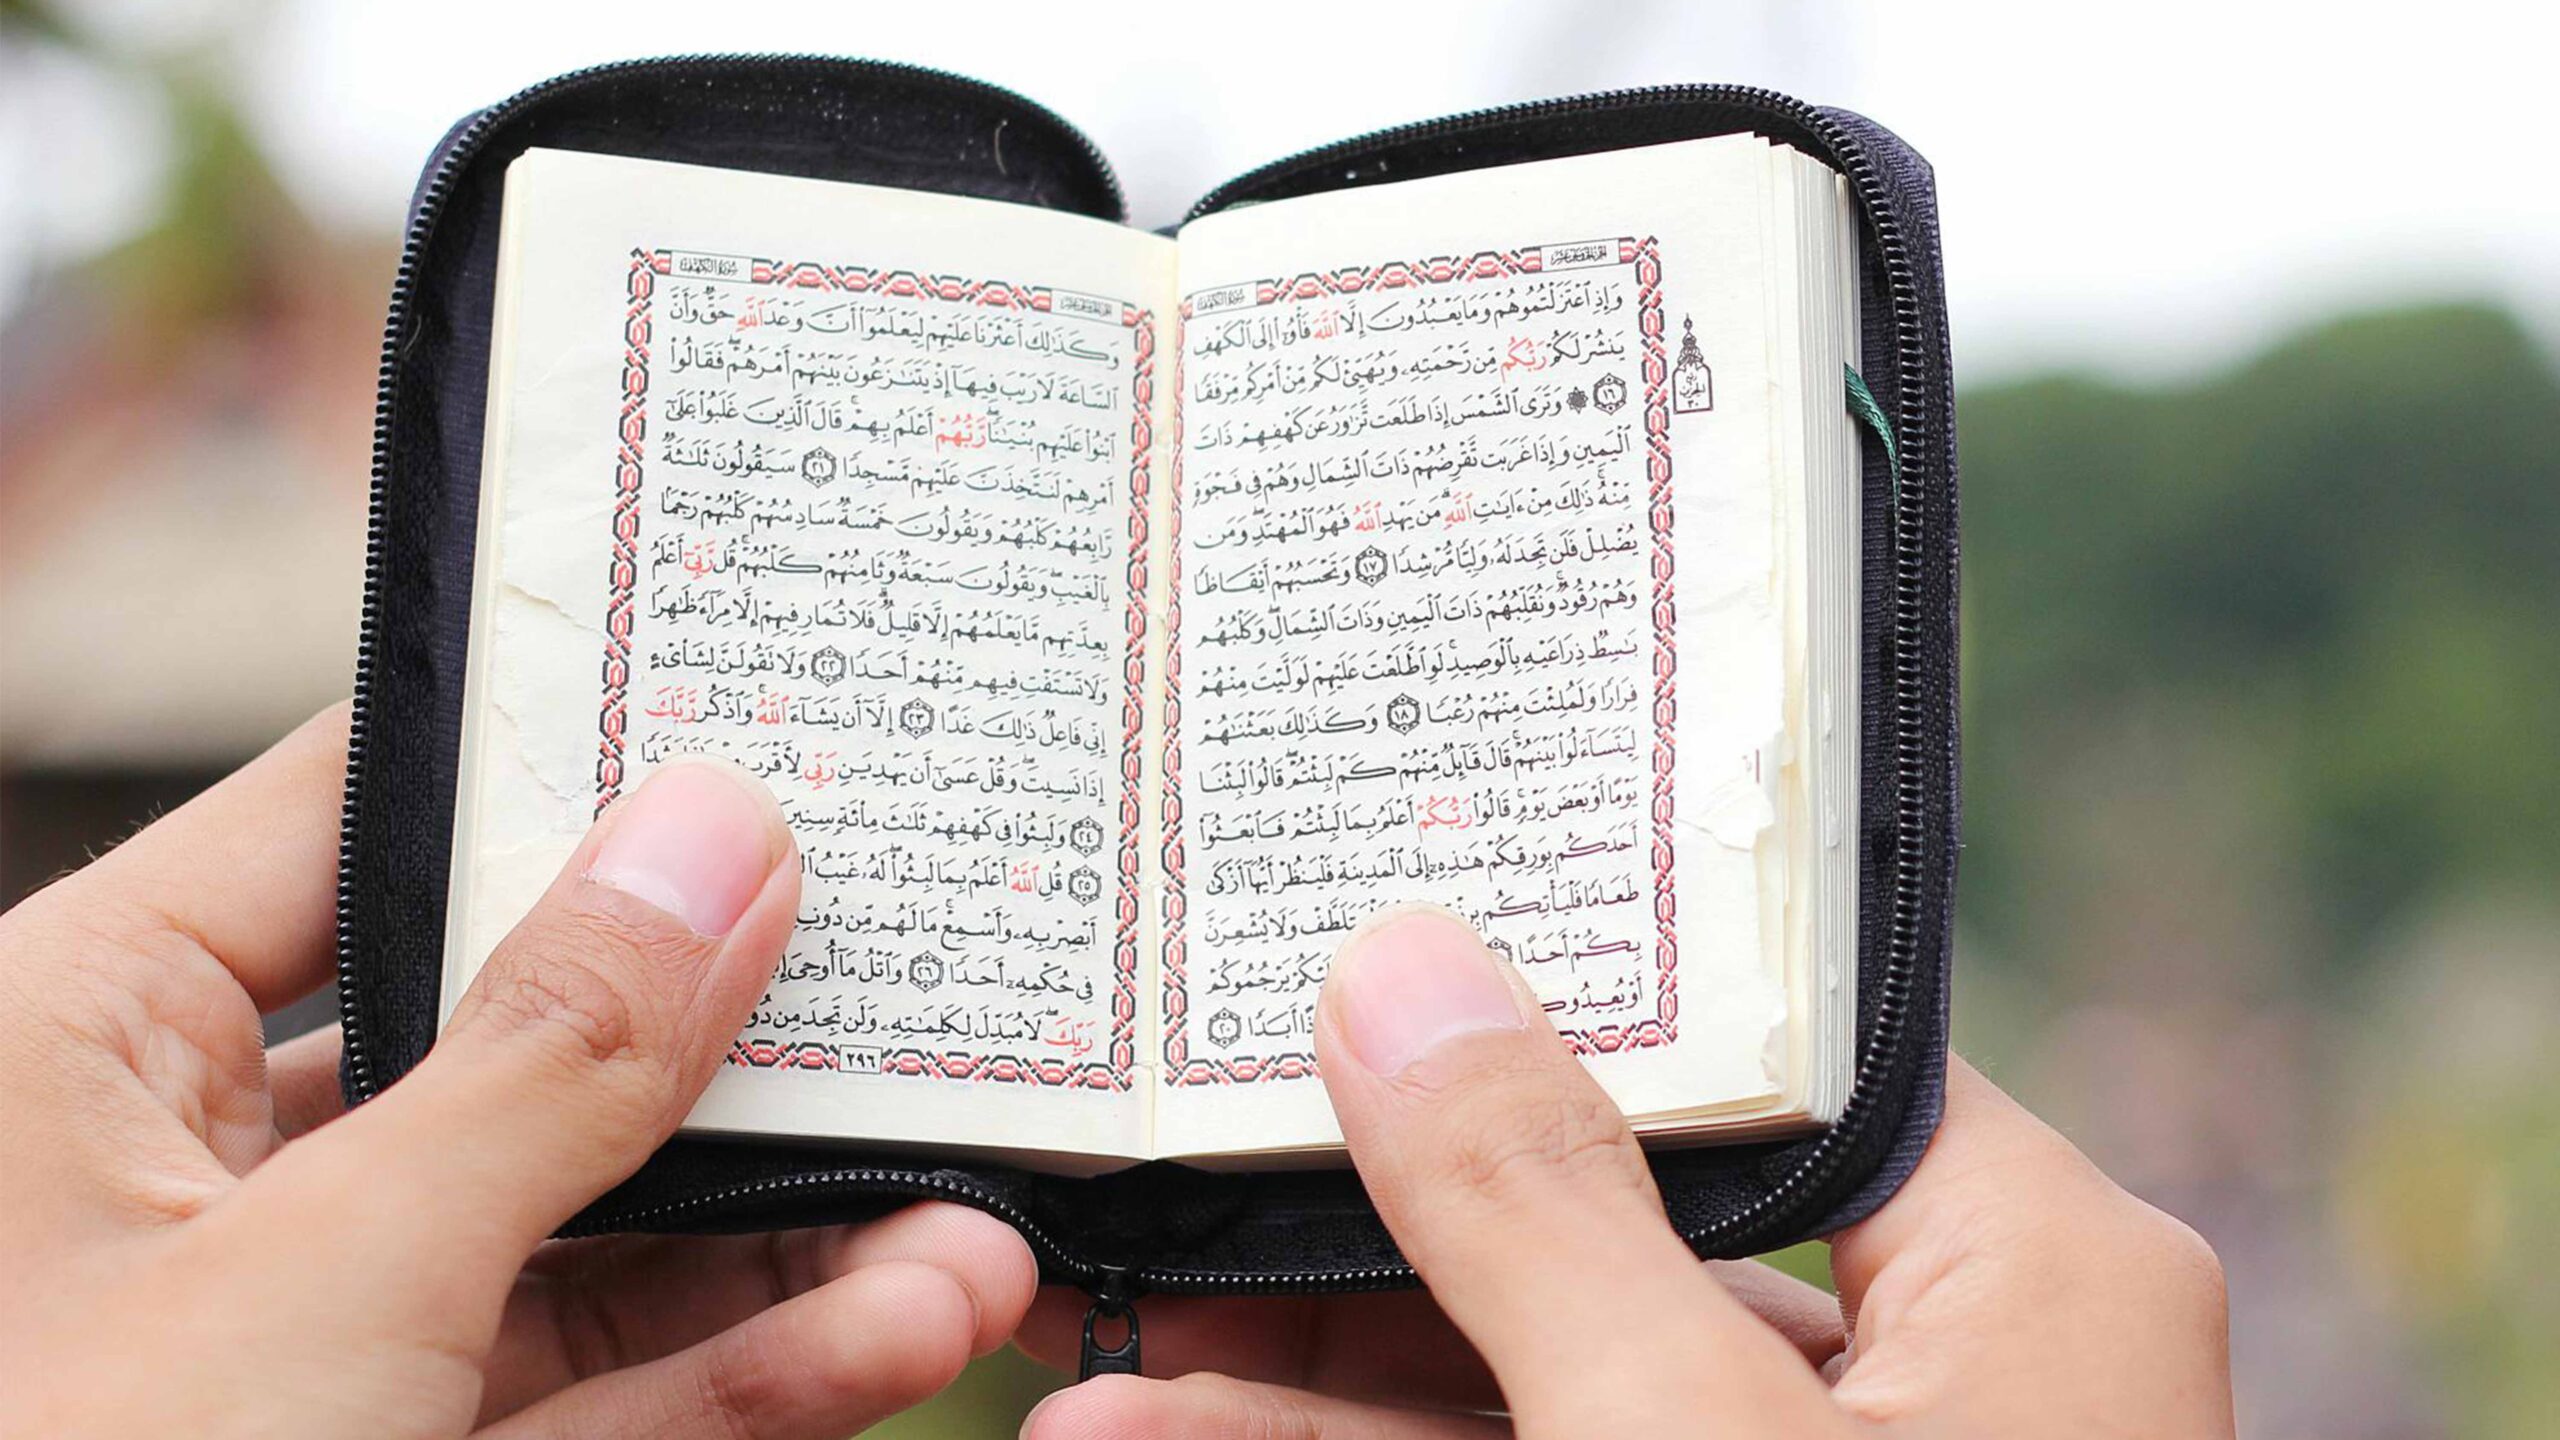 سورة الكهف
وَإِذِ ٱعْتَزَلْتُمُوهُمْ وَمَا يَعْبُدُونَ إِلَّا ٱللَّهَ فَأْوُۥٓا۟ إِلَى ٱلْكَهْفِ
يَنشُرْ لَكُمْ رَبُّكُم مِّن رَّحْمَتِهِۦ وَيُهَيِّئْ لَكُم مِّنْ أَمْرِكُم مِّرْفَقًا
١٦ ۞ وَتَرَى ٱلشَّمْسَ إِذَا طَلَعَت تَّزَٰوَرُ عَن كَهْفِهِمْ ذَاتَ
ٱلْيَمِينِ وَإِذَا غَرَبَت تَّقْرِضُهُمْ ذَاتَ ٱلشِّمَالِ وَهُمْ فِى فَجْوَةٍ
مِّنْهُ ۚ ذَٰلِكَ مِنْ ءَايَٰتِ ٱللَّهِ ۗ مَن يَهْدِ ٱللَّهُ فَهُوَ ٱلْمُهْتَدِ ۖ وَمَن
يُضْلِلْ فَلَن تَجِدَ لَهُۥ وَلِيًّا مُّرْشِدًا ١٧ وَتَحْسَبُهُمْ أَيْقَاظًا
وَهُمْ رُقُودٌ ۚ وَنُقَلِّبُهُمْ ذَاتَ ٱلْيَمِينِ وَذَاتَ ٱلشِّمَالِ ۖ وَكَلْبُهُم
بَٰسِطٌ ذِرَاعَيْهِ بِٱلْوَصِيدِ ۚ لَوِ ٱطَّلَعْتَ عَلَيْهِمْ لَوَلَّيْتَ مِنْهُمْ
فِرَارًا وَلَمُلِئْتَ مِنْهُمْ رُعْبًا ١٨ وَكَذَٰلِكَ بَعَثْنَٰهُمْ
لِيَتَسَآءَلُوا۟ بَيْنَهُمْ ۚ قَالَ قَآئِلٌ مِّنْهُمْ كَمْ لَبِثْتُمْ ۖ قَالُوا۟ لَبِثْنَا
يَوْمًا أَوْ بَعْضَ يَوْمٍ ۚ قَالُوا۟ رَبُّكُمْ أَعْلَمُ بِمَا لَبِثْتُمْ فَٱبْعَثُوٓا۟
أَحَدَكُم بِوَرِقِكُمْ هَٰذِهِۦٓ إِلَى ٱلْمَدِينَةِ فَلْيَنظُرْ أَيُّهَآ أَزْكَىٰ
طَعَامًا فَلْيَأْتِكُم وَلَا يُشْعِرَنَّ
بِكُمْ أَحَدًا يَرْجُمُوكُمْ
أَوْ أَبَدًا ٢٠
سورة الكهف
وَكَذَٰلِكَ أَعْثَرْنَا عَلَيْهِمْ لِيَعْلَمُوٓا۟ أَنَّ وَعْدَ ٱللَّهِ حَقٌّ وَأَنَّ
ٱلسَّاعَةَ لَا رَيْبَ فِيهَآ إِذْ يَتَنَٰزَعُونَ بَيْنَهُمْ أَمْرَهُمْ ۖ فَقَالُوا۟
ٱبْنُوا۟ عَلَيْهِم بُنْيَٰنًا ۖ رَّبُّهُمْ أَعْلَمُ بِهِمْ ۚ قَالَ ٱلَّذِينَ غَلَبُوا۟ عَلَىٰٓ
أَمْرِهِمْ لَنَتَّخِذَنَّ عَلَيْهِم مَّسْجِدًا ٢١ سَيَقُولُونَ ثَلَٰثَةٌ
رَّابِعُهُمْ كَلْبُهُمْ وَيَقُولُونَ خَمْسَةٌ سَادِسُهُمْ كَلْبُهُمْ رَجْمًۢا
بِٱلْغَيْبِ ۖ وَيَقُولُونَ سَبْعَةٌ وَثَامِنُهُمْ كَلْبُهُمْ ۚ قُل رَّبِّىٓ أَعْلَمُ
بِعِدَّتِهِم مَّا يَعْلَمُهُمْ إِلَّا قَلِيلٌ ۗ فَلَا تُمَارِ فِيهِمْ إِلَّا مِرَآءً ظَٰهِرًا
وَلَا تَسْتَفْتِ فِيهِم مِّنْهُمْ أَحَدًا ٢٢ وَلَا تَقُولَنَّ لِشَا۟ىْءٍ
إِنِّى فَاعِلٌ ذَٰلِكَ غَدًا ٢٣ إِلَّآ أَن يَشَآءَ ٱللَّهُ ۚ وَٱذْكُر رَّبَّكَ
إِذَا نَسِيتَ وَقُلْ عَسَىٰٓ أَن يَهْدِيَنِ رَبِّى لِأَقْرَبَ
٢٤ وَلَبِثُوا۟ فِى كَهْفِهِمْ ثَلَٰثَ مِا۟ئَةٍ سِنِينَ
٢٥ قُلِ ٱللَّهُ أَعْلَمُ بِمَا لَبِثُوا۟ ۖ لَهُۥ غَيْبُ
أَبْصِرْ بِهِۦ وَأَسْمِعْ ۚ مَا لَهُم مِّن دُونِهِ
فِى حُكْمِهِۦٓ أَحَدًا ٢٦ وَٱتْلُ مَآ أُوحِىَ
رَبِّكَ ۖ لَا مُبَدِّلَ لِكَلِمَٰتِهِۦ وَلَن تَجِدَ مِن
٢٩٦